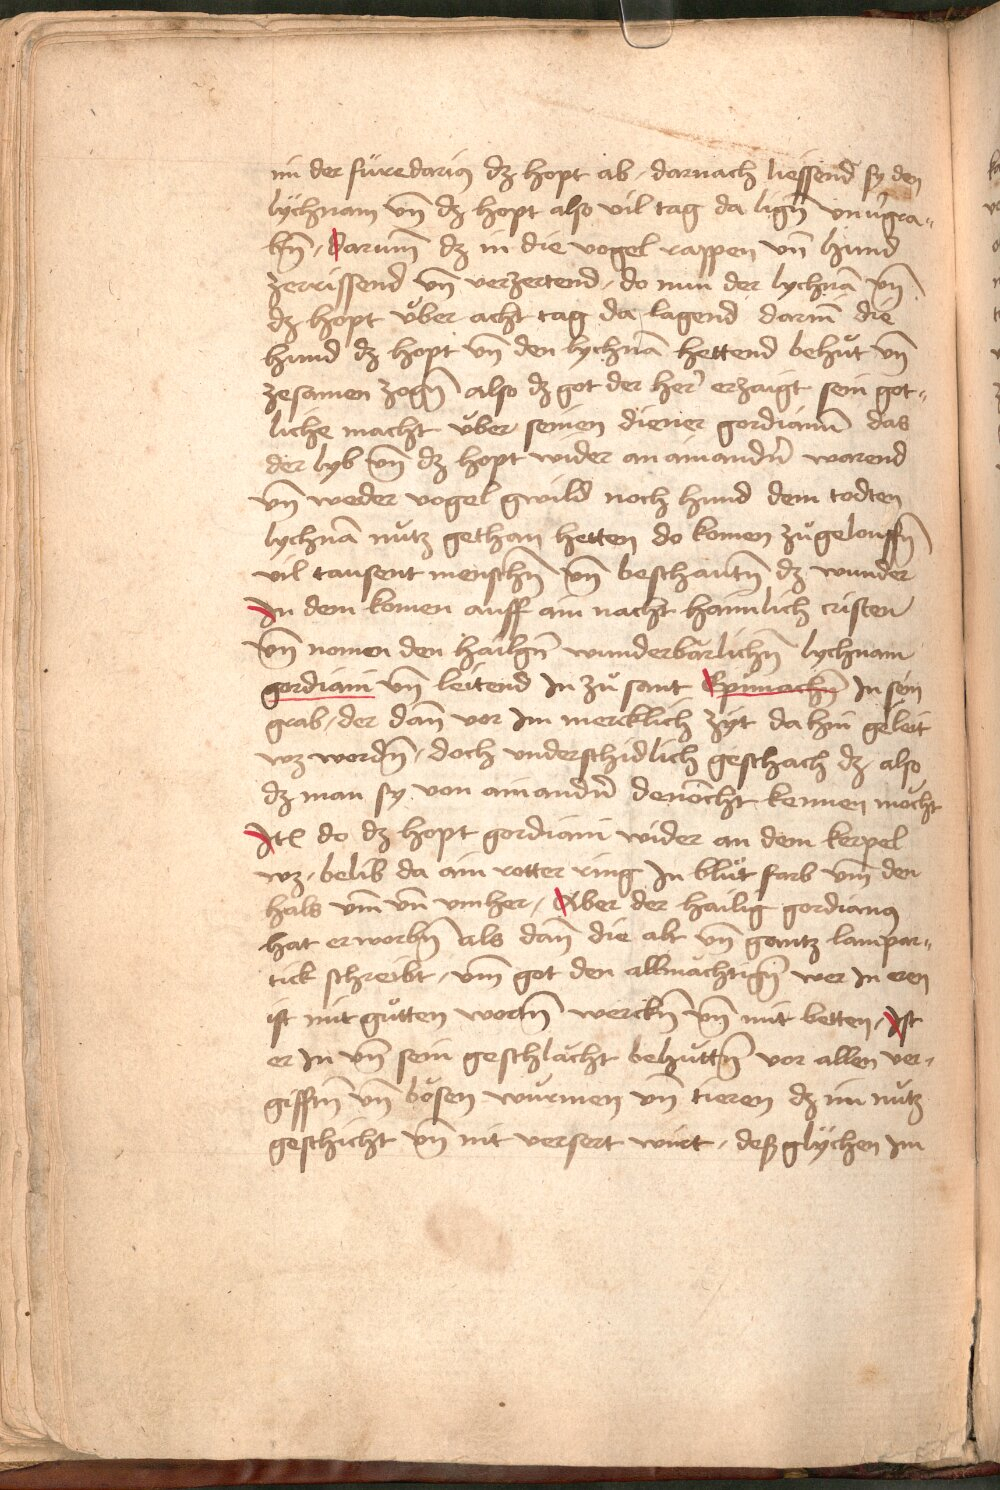 im der füredarius dz hopt ab / darnach liessend sy den
lÿchnam vn̄ dz hopt also vil tag da lign̄ vnūgra„
bn̄ / Darum̄ dz in die vogel rappen vn̄ hund
zerrissend vn̄ verzertend / do nun der lychnā vn̄
dz hopt vͤber acht tag da lagend darin̄ die
hund dz hopt vn̄ den lychnā hettend behuͤt vn̄
zesamen zogn̄ also dz got der her̄ erzaigt sein got„
liche macht vͤber seinen diener gordianū das
der lyb vn̄ dz hopt wider an ainandn̄ warend
vn̄ weder vogel gwild noch hund dem todten
lychnā nuͤtz gethan hetten do komen zuͦgelouffn̄
vil tausent menschn̄ vn̄ beschautn̄ dz wunder
In dem komen auff ain nacht haimlich cristen
vn̄ nomen den hailgn̄ wunderbarlichn̄ lychnam
gordiani vn̄ leitend In zuͦ sant Epimachū In sein
grab / der dan̄ vor Im mercklich zyt da hin geleit
wz wordn̄ / doch vnderschidlich geschach dz also
dz man sy von ainandn̄ denōcht kennen moͤcht
Itē do dz hopt gordiani wider an dem kerpel
wz / belib da ain rotter ring In bluͦt farb vm̄ den
hals vm̄ vn̄ vmher / Aber der hailig gordianus
hat erworbn̄ als dan̄ die alt vn̄ gantz lampar„
tick schreibt / vm̄ got den allmaͤchtign̄ wer In eren
ist mit guͦtten wortn̄ werckn̄ vn̄ mit betten / Ist
er In vn̄ sein geschlaͤcht behuͤttn̄ vor allen ver„
gifftn̄ vn̄ boͤsen wuͤrmen vn̄ tieren dz im nuͤtz
geschicht vn̄ nit versert wirt / deß glÿchen Im